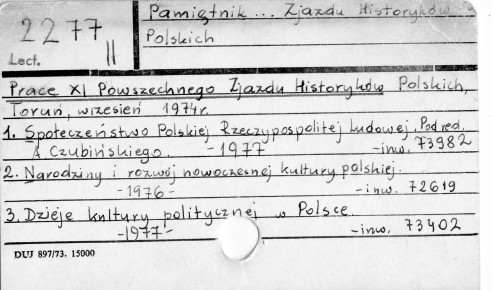 Pamiętnik... Zjazdu Historyków
Polskich
2277
II
Lect.
Prace XI Powszechnego Zjazdu Historyków Polskich,
Toruń, wrzesień 1974r.
1. Społeczeństwo Polskiej Rzeczypospolitej Ludowej. Pod red.
A. Czubińskiego. -1977 -inw. 73982
2. Narodziny i rozwój nowoczesnej kultury polskiej.
-1976- -inw. 72619
3. Dzieje kultury politycznej w Polsce.
-1977- -inw. 73402
DUJ 897/73. 15000